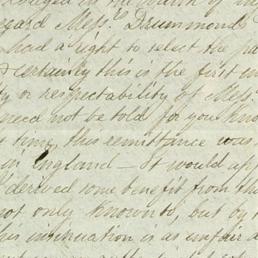 regard Mess.rs Drummond
had a right to select the pa
& certainly this is the first in
ty or respectability of Mess.
need not be told for you know
y time, this remittance was
in England — It would ap
derived some benefit from the
not only known to, but by t
his insinuation is as unfair a